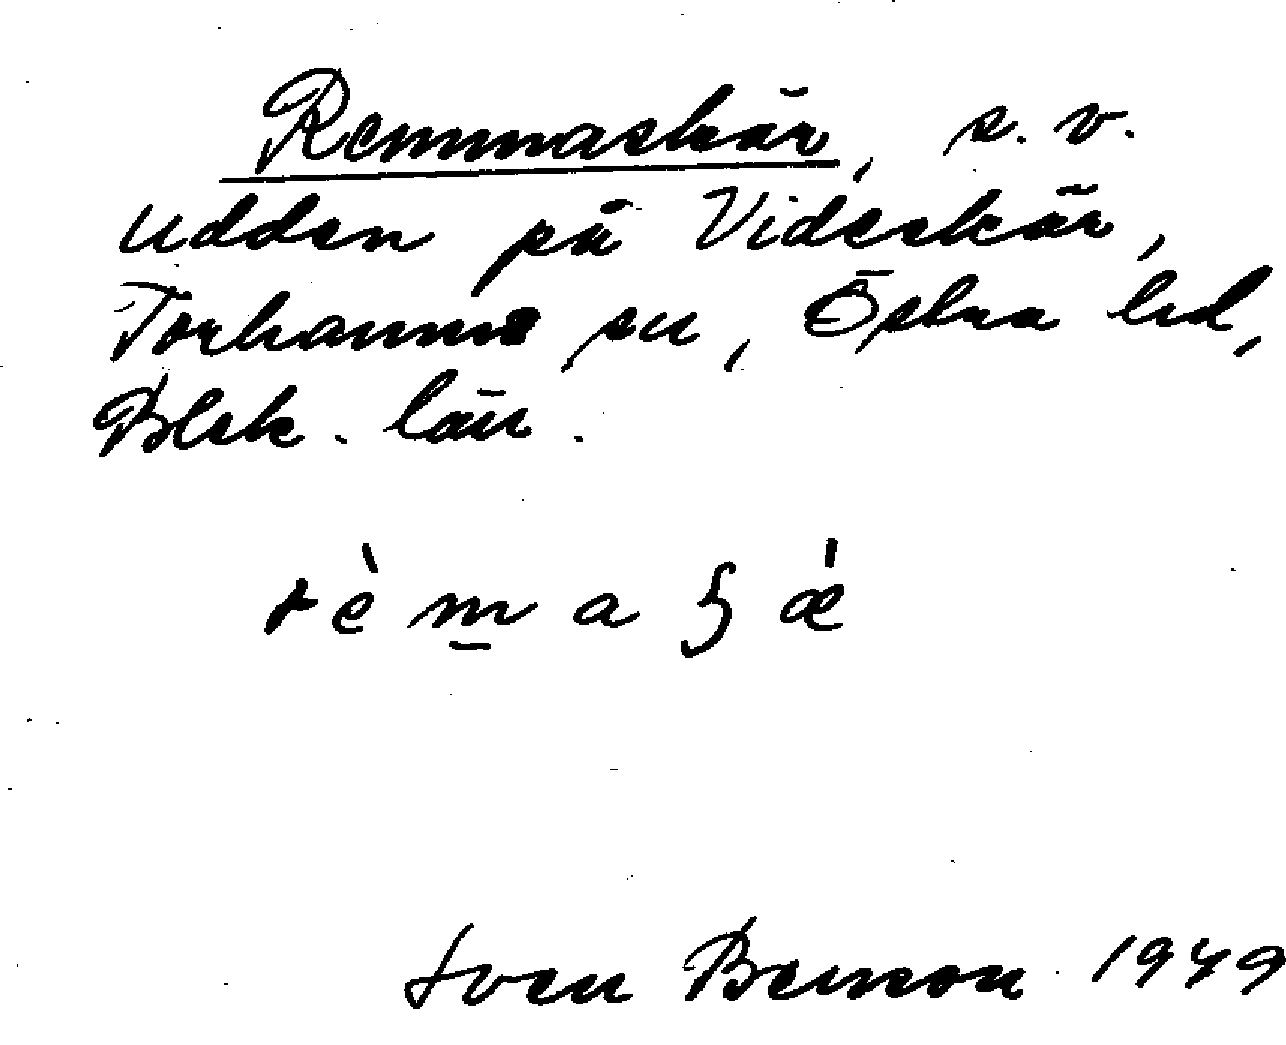 Remmaskär, s. v.
udden på Videskär,
Torhamns sn, Östra hd,
Blek. län.
rèm̲aʒǽ
Sven Benson 1949